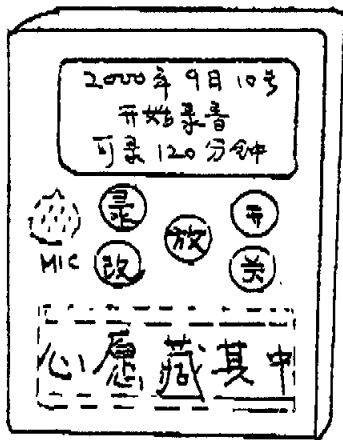 2000年9日10号
开始录音
可录120分钟
录 放 开
MIC 改 关
心愿藏其中